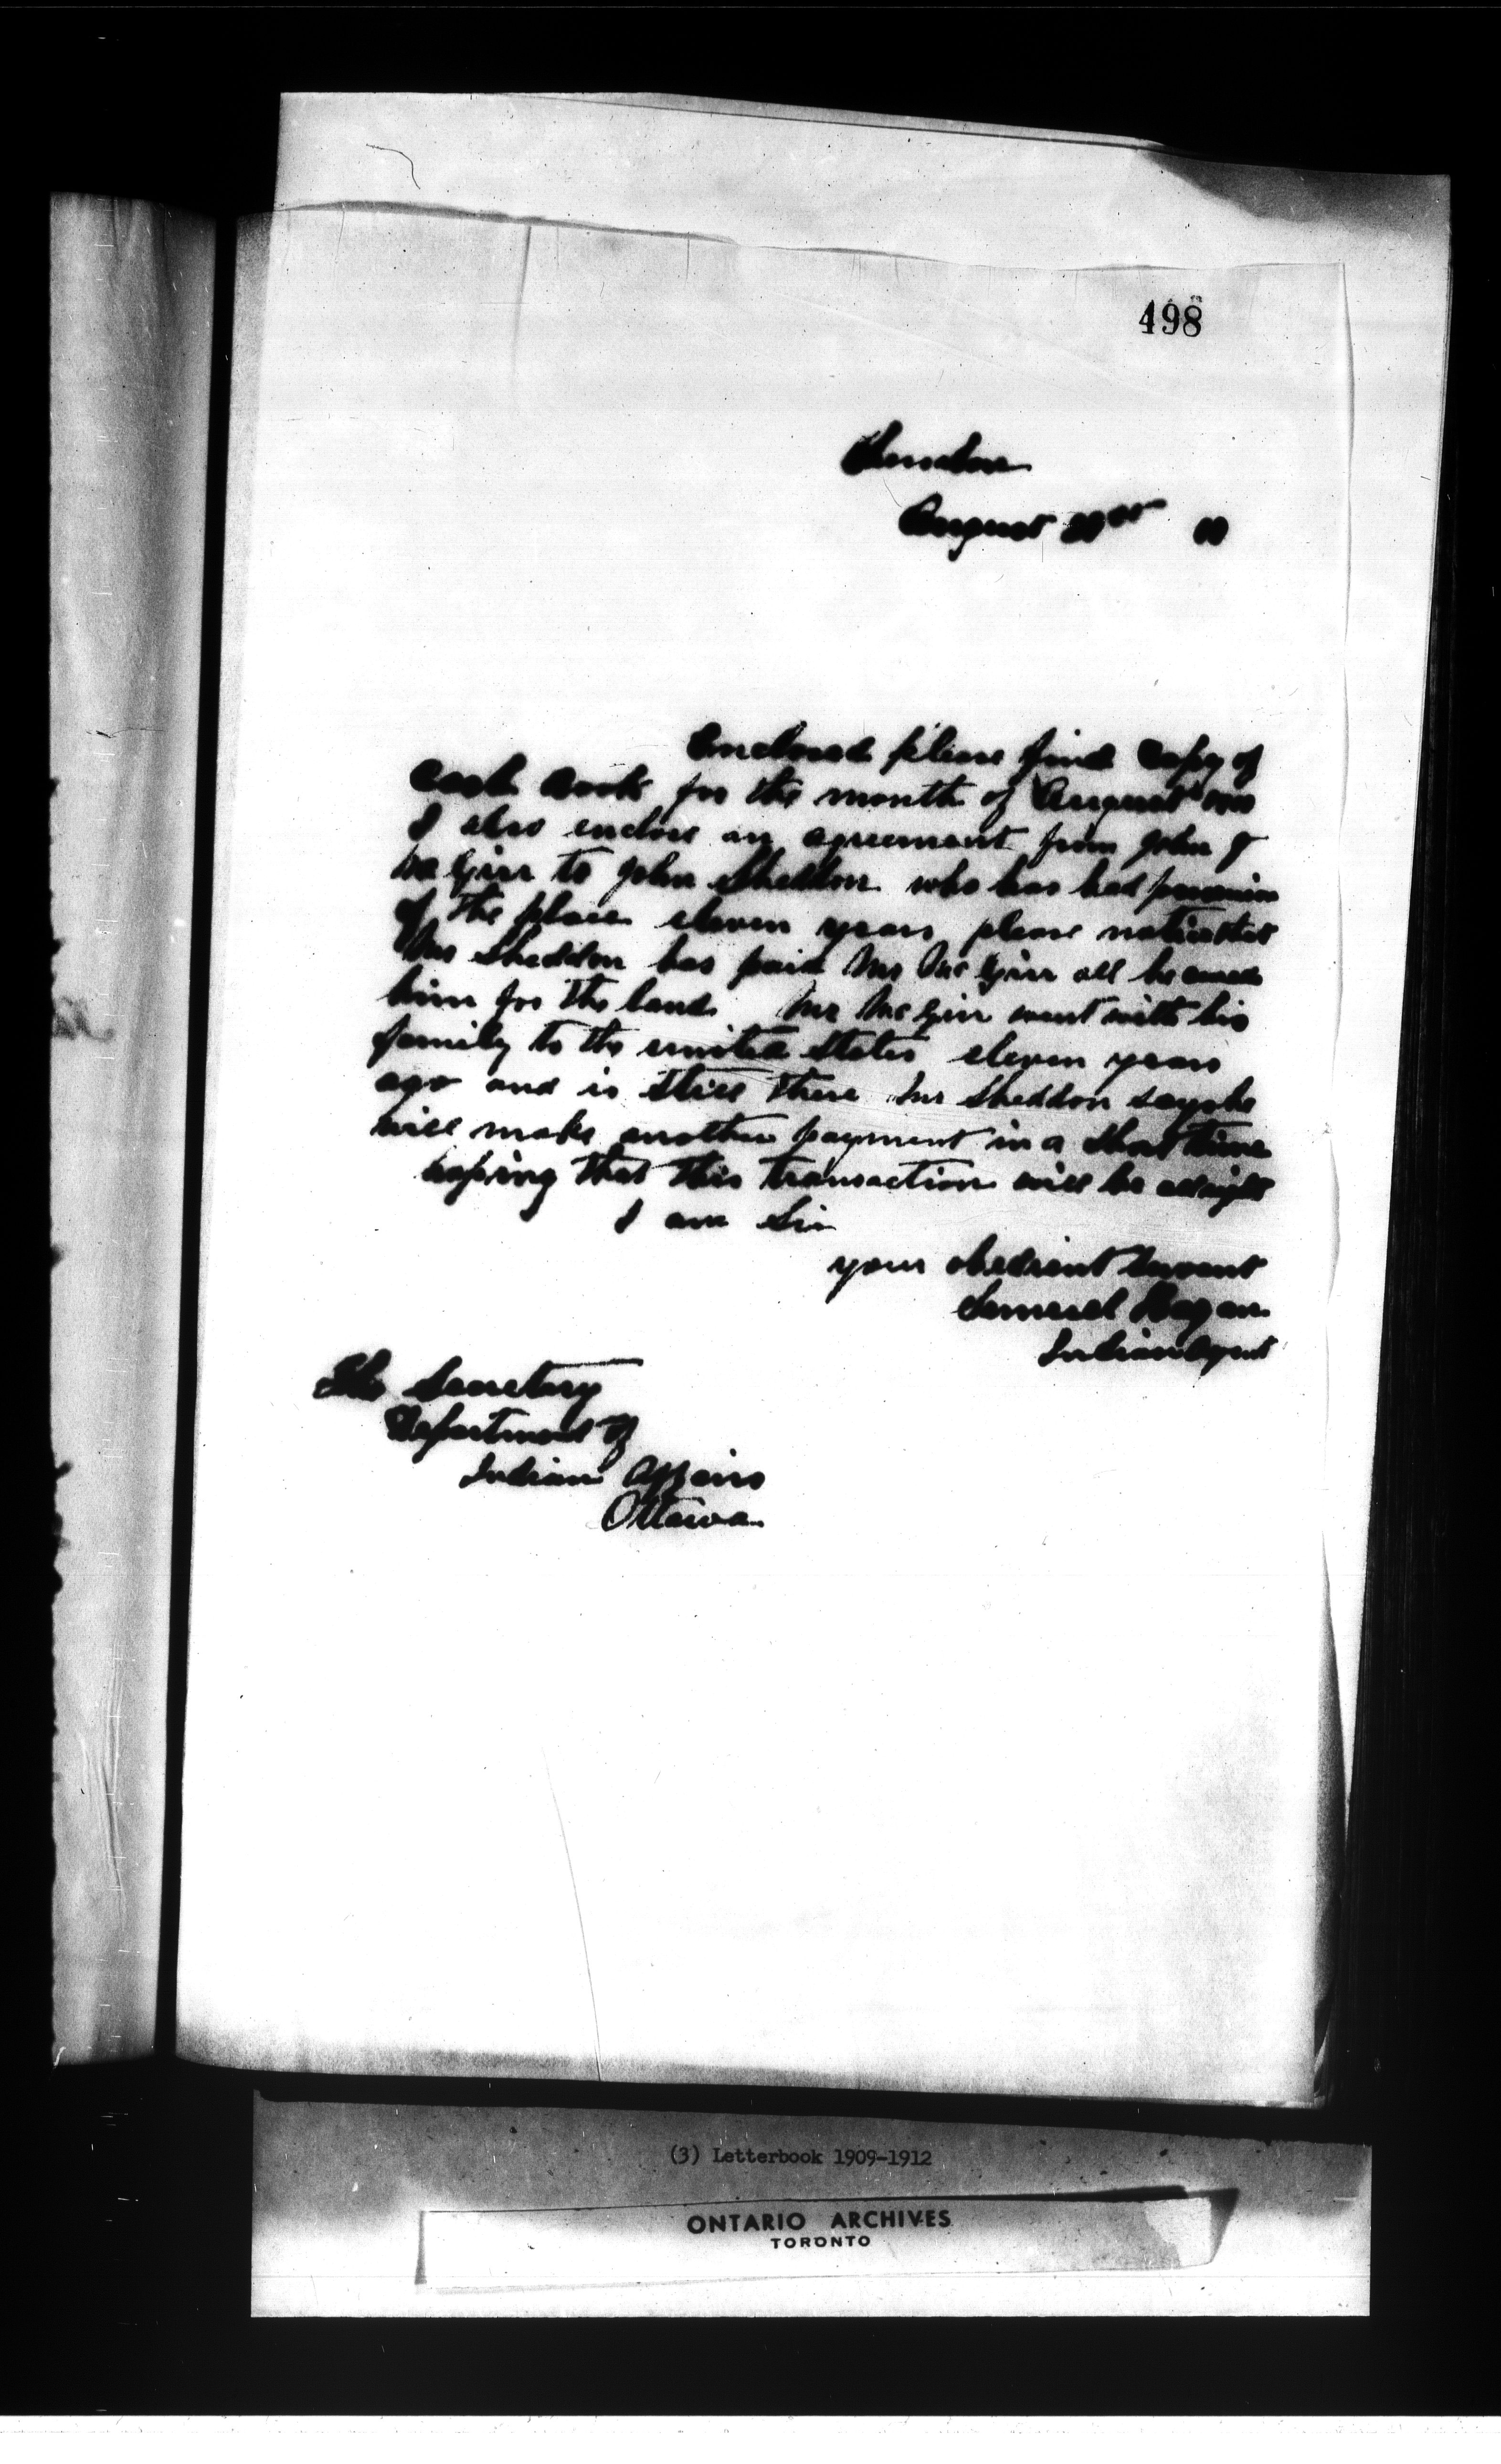 498
August
Enclosed please find Copy of
Cash Book for the month of August
I also enclose an agreement from John J
McGirr to John Sheddon who has had possession
of the place eleven years please notice that
Mr Sheddon has paid Mr McGirr all he owed
him for the land Mr McGirr went with his
family to the united States eleven years
ago and is still there Mr Sheddon says he
will make another payment in a short time
hoping that this transaction will be allright
I am Sir
your obedient Servant
Samuel Hagan
Indian Agent
The Secretary
Department of
Indian Affairs
Ottawa
(3) Letterbook 1909-1912
ONTARIO ARCHIVES
TORONTO